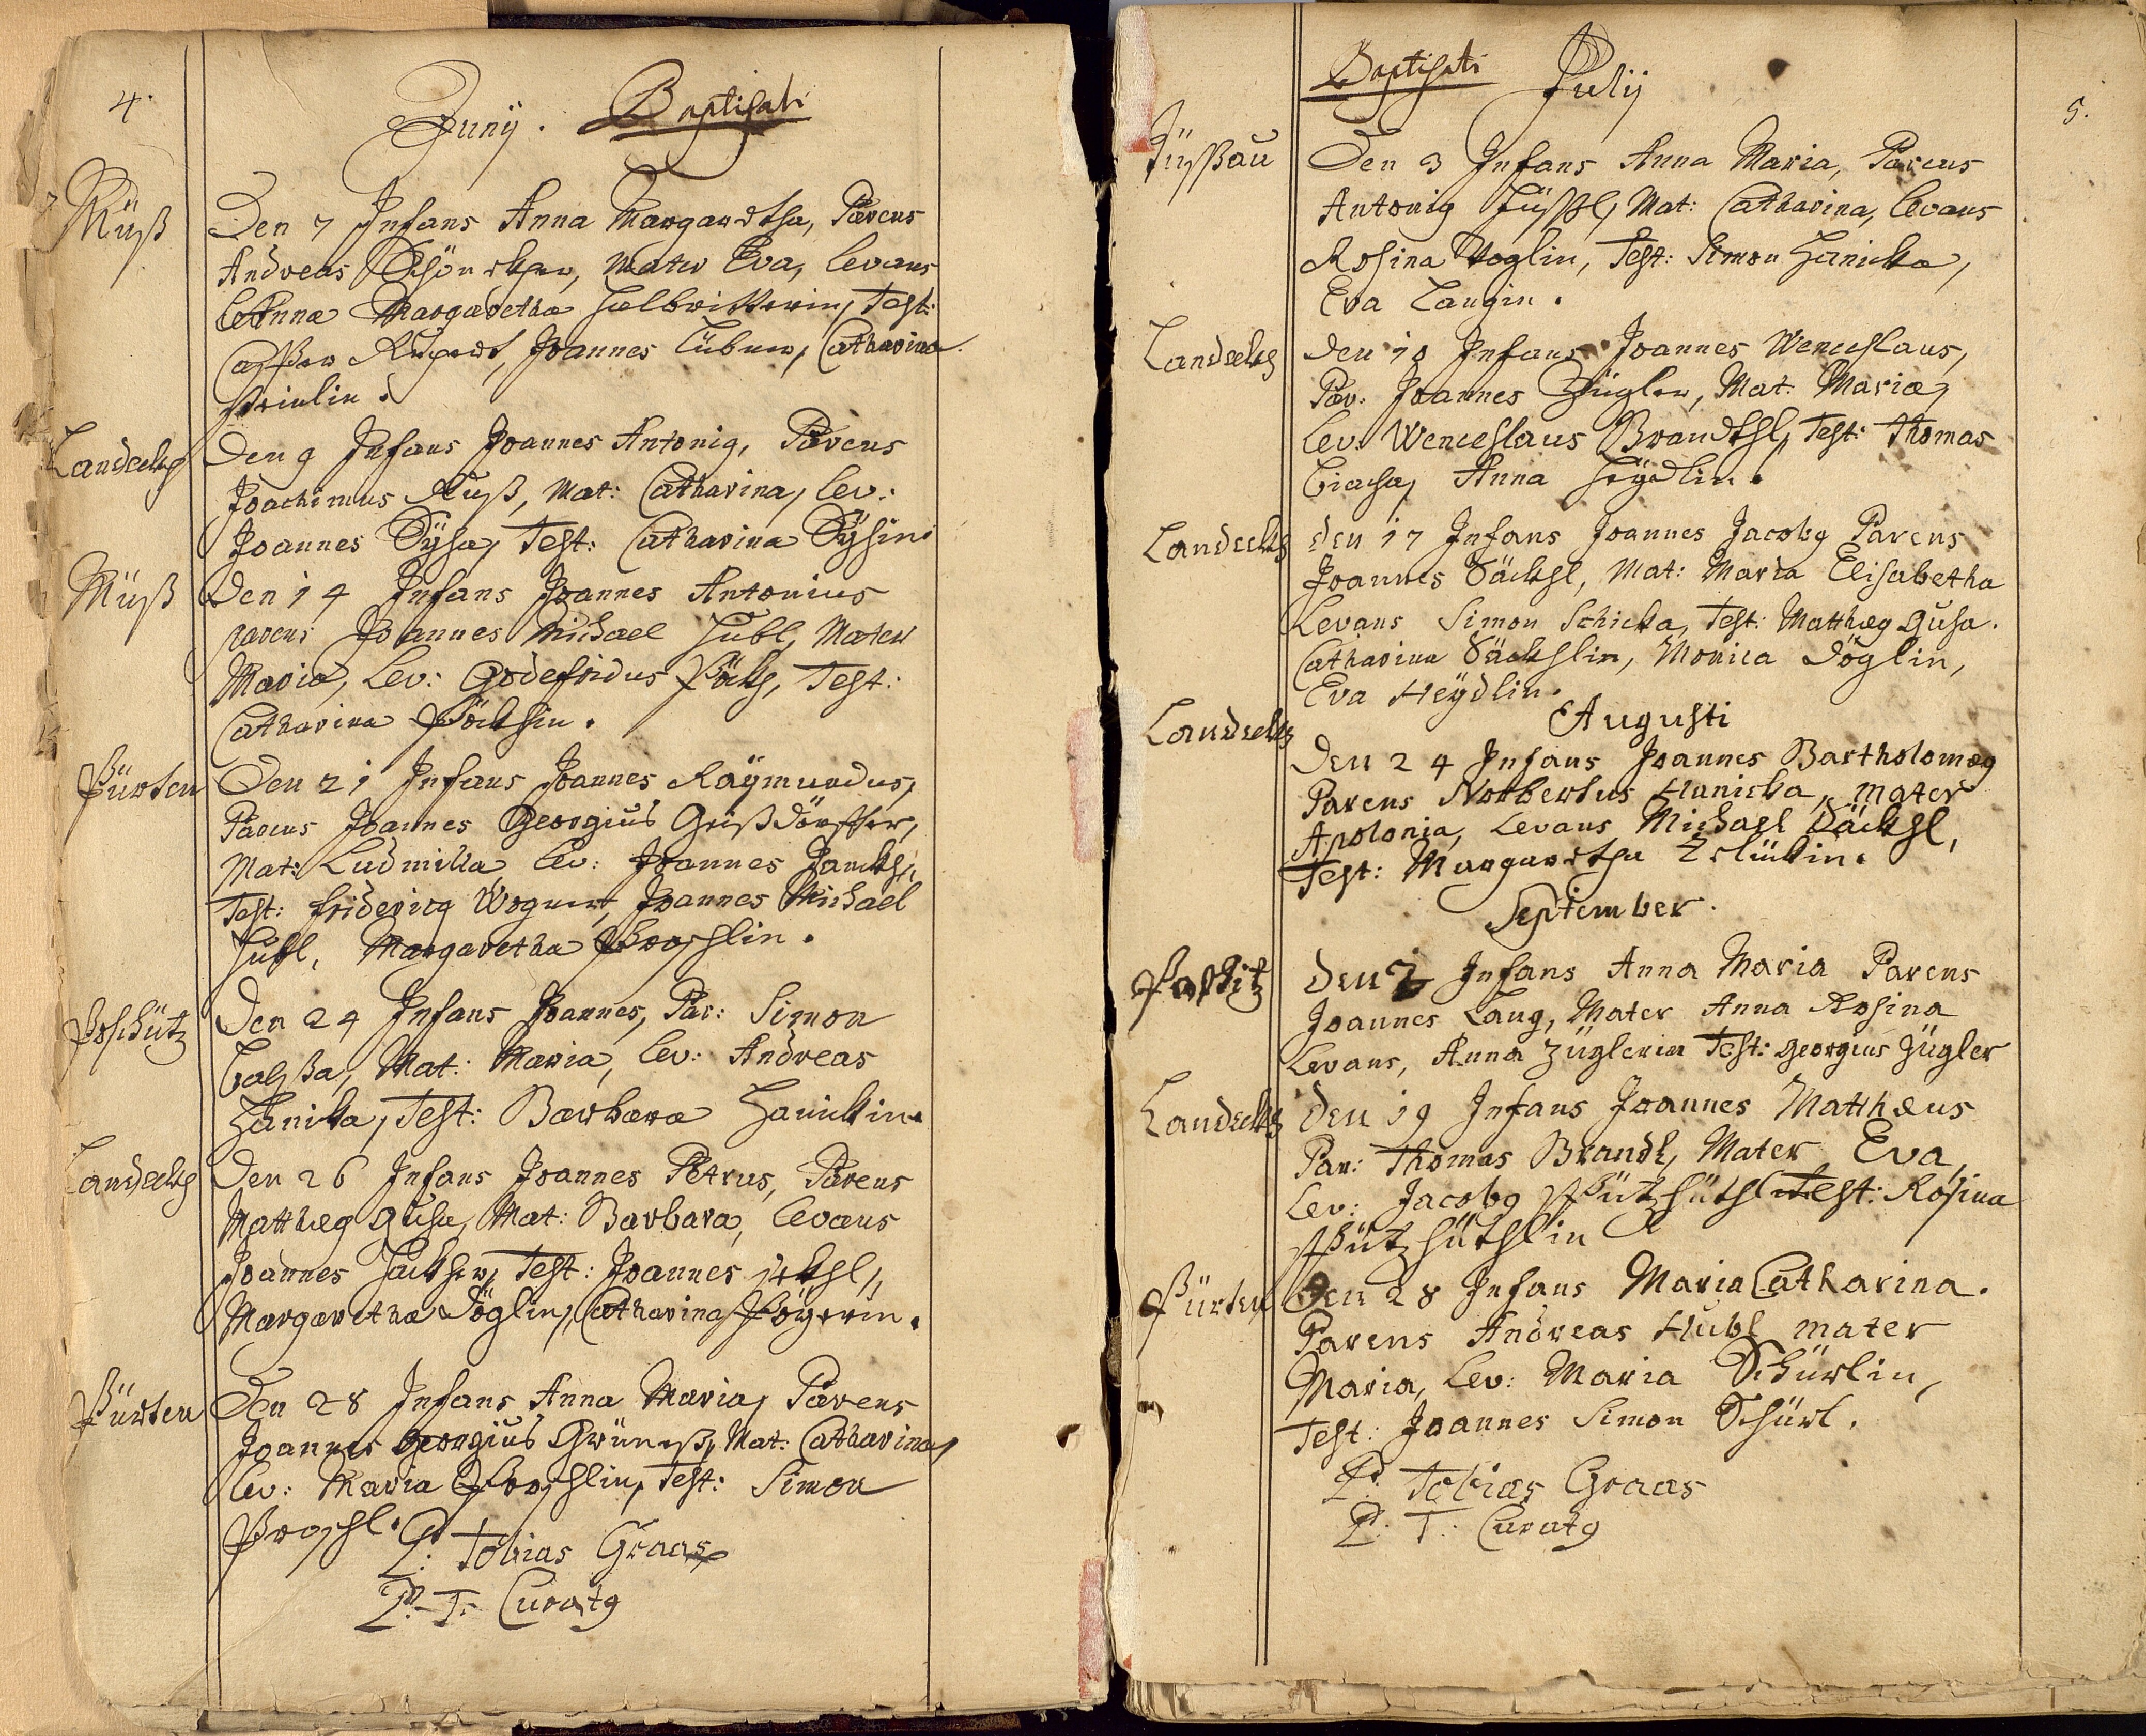 4.
Junÿ. Baptisati
Müß
Den 7 Infans Anna Margaretha, Parens
Andreas Mater Eva, Levans
Anna Margaretha Halbritterin, Test:
Casper Rupert, Joannes Catharina
Landeckh
Den 9 Infans Joannes Antonig, Parens
Joachimus Ruß, Mat: Catharina, Lev:
Joannes Test: Catharina
Müß
Den 14 Infans Joannes Antonius
parens Joannes Michael Hubl, Mater
Maria, Lev: Godefridus Test:
Catharina
Pürten
Den 21 Infans Joannes Raÿmundus,
Parens Joannes Georgius
Mat: Ludmilla Lev: Joannes
Test: fridericg Wogner, Joannes Michael
Hubl, Margaretha Proschlin.
Poschütz
Den 24 Infans Joannes, Par: Simon
Mat: Maria, Lev: Andreas
Hanicka, Test: Barbara Hanickin.
Landeckh
Den 26 Infans Joannes Petrus, Parens
Matthæg Gusa, Mat: Barbara, Levans
Joannes Test: Joannes
Margaretha Döglin, Catharina
Pürten
Den 28 Infans Anna Maria, Parens
Joannes Georgius Mat: Catharina,
Lev: Maria Proschlin, Test: Simon
Proschl.
P: Tobias Graas
P: T: Curatg
5.
Baptisati Julij
Den 3 Infans Anna Maria, Parens
Antonig Mat: Catharina, Levans
Rosina Voglin, Test: Simon Hanicka,
Eva Langin.
Landeckh
Den 10 Infans Joannes Wenceslaus,
Par: Joannes Zügler, Mat: Maria,
Lev: Wenceslaus Brandtl, Test: Thomas
Anna Heÿdlin.
Landeckh
Den 17 Infans Joannes Jacobg Parens
Joannes Säckhl, Mat: Maria Elisabetha
Levans Simon Schicka, Test: Matthæg Gusa.
Catharina Säckhlin, Monica Döglin,
Eva Heÿdlin.
Augusti
Landeckh
Den 24 Infans Joannes Bartholomæg
Parens Norbertus Hanicka, Mater
Apolonia, Levans Michael Säckhl,
Test: Margaretha
September.
Poschitz
Den 7 Infans Anna Maria Parens
Joannes Lang, Mater Anna Rosina
Levans, Anna Züglerin Test: Georgius Zügler
Landeckh
Den 19 Infans Joannes Matthæus
Par: Thomas Brandl, Mater Eva,
Lev: Jacobg Spützhüthl Test: Rosina
Spützhüthlin
Pürten
Den 28 Infans Maria Catharina.
Parens Andreas Hubl Mater
Maria, Lev: Maria Schürlin,
Test: Joannes Simon Schürl.
P: Tobias Graas
P: T: Curatg